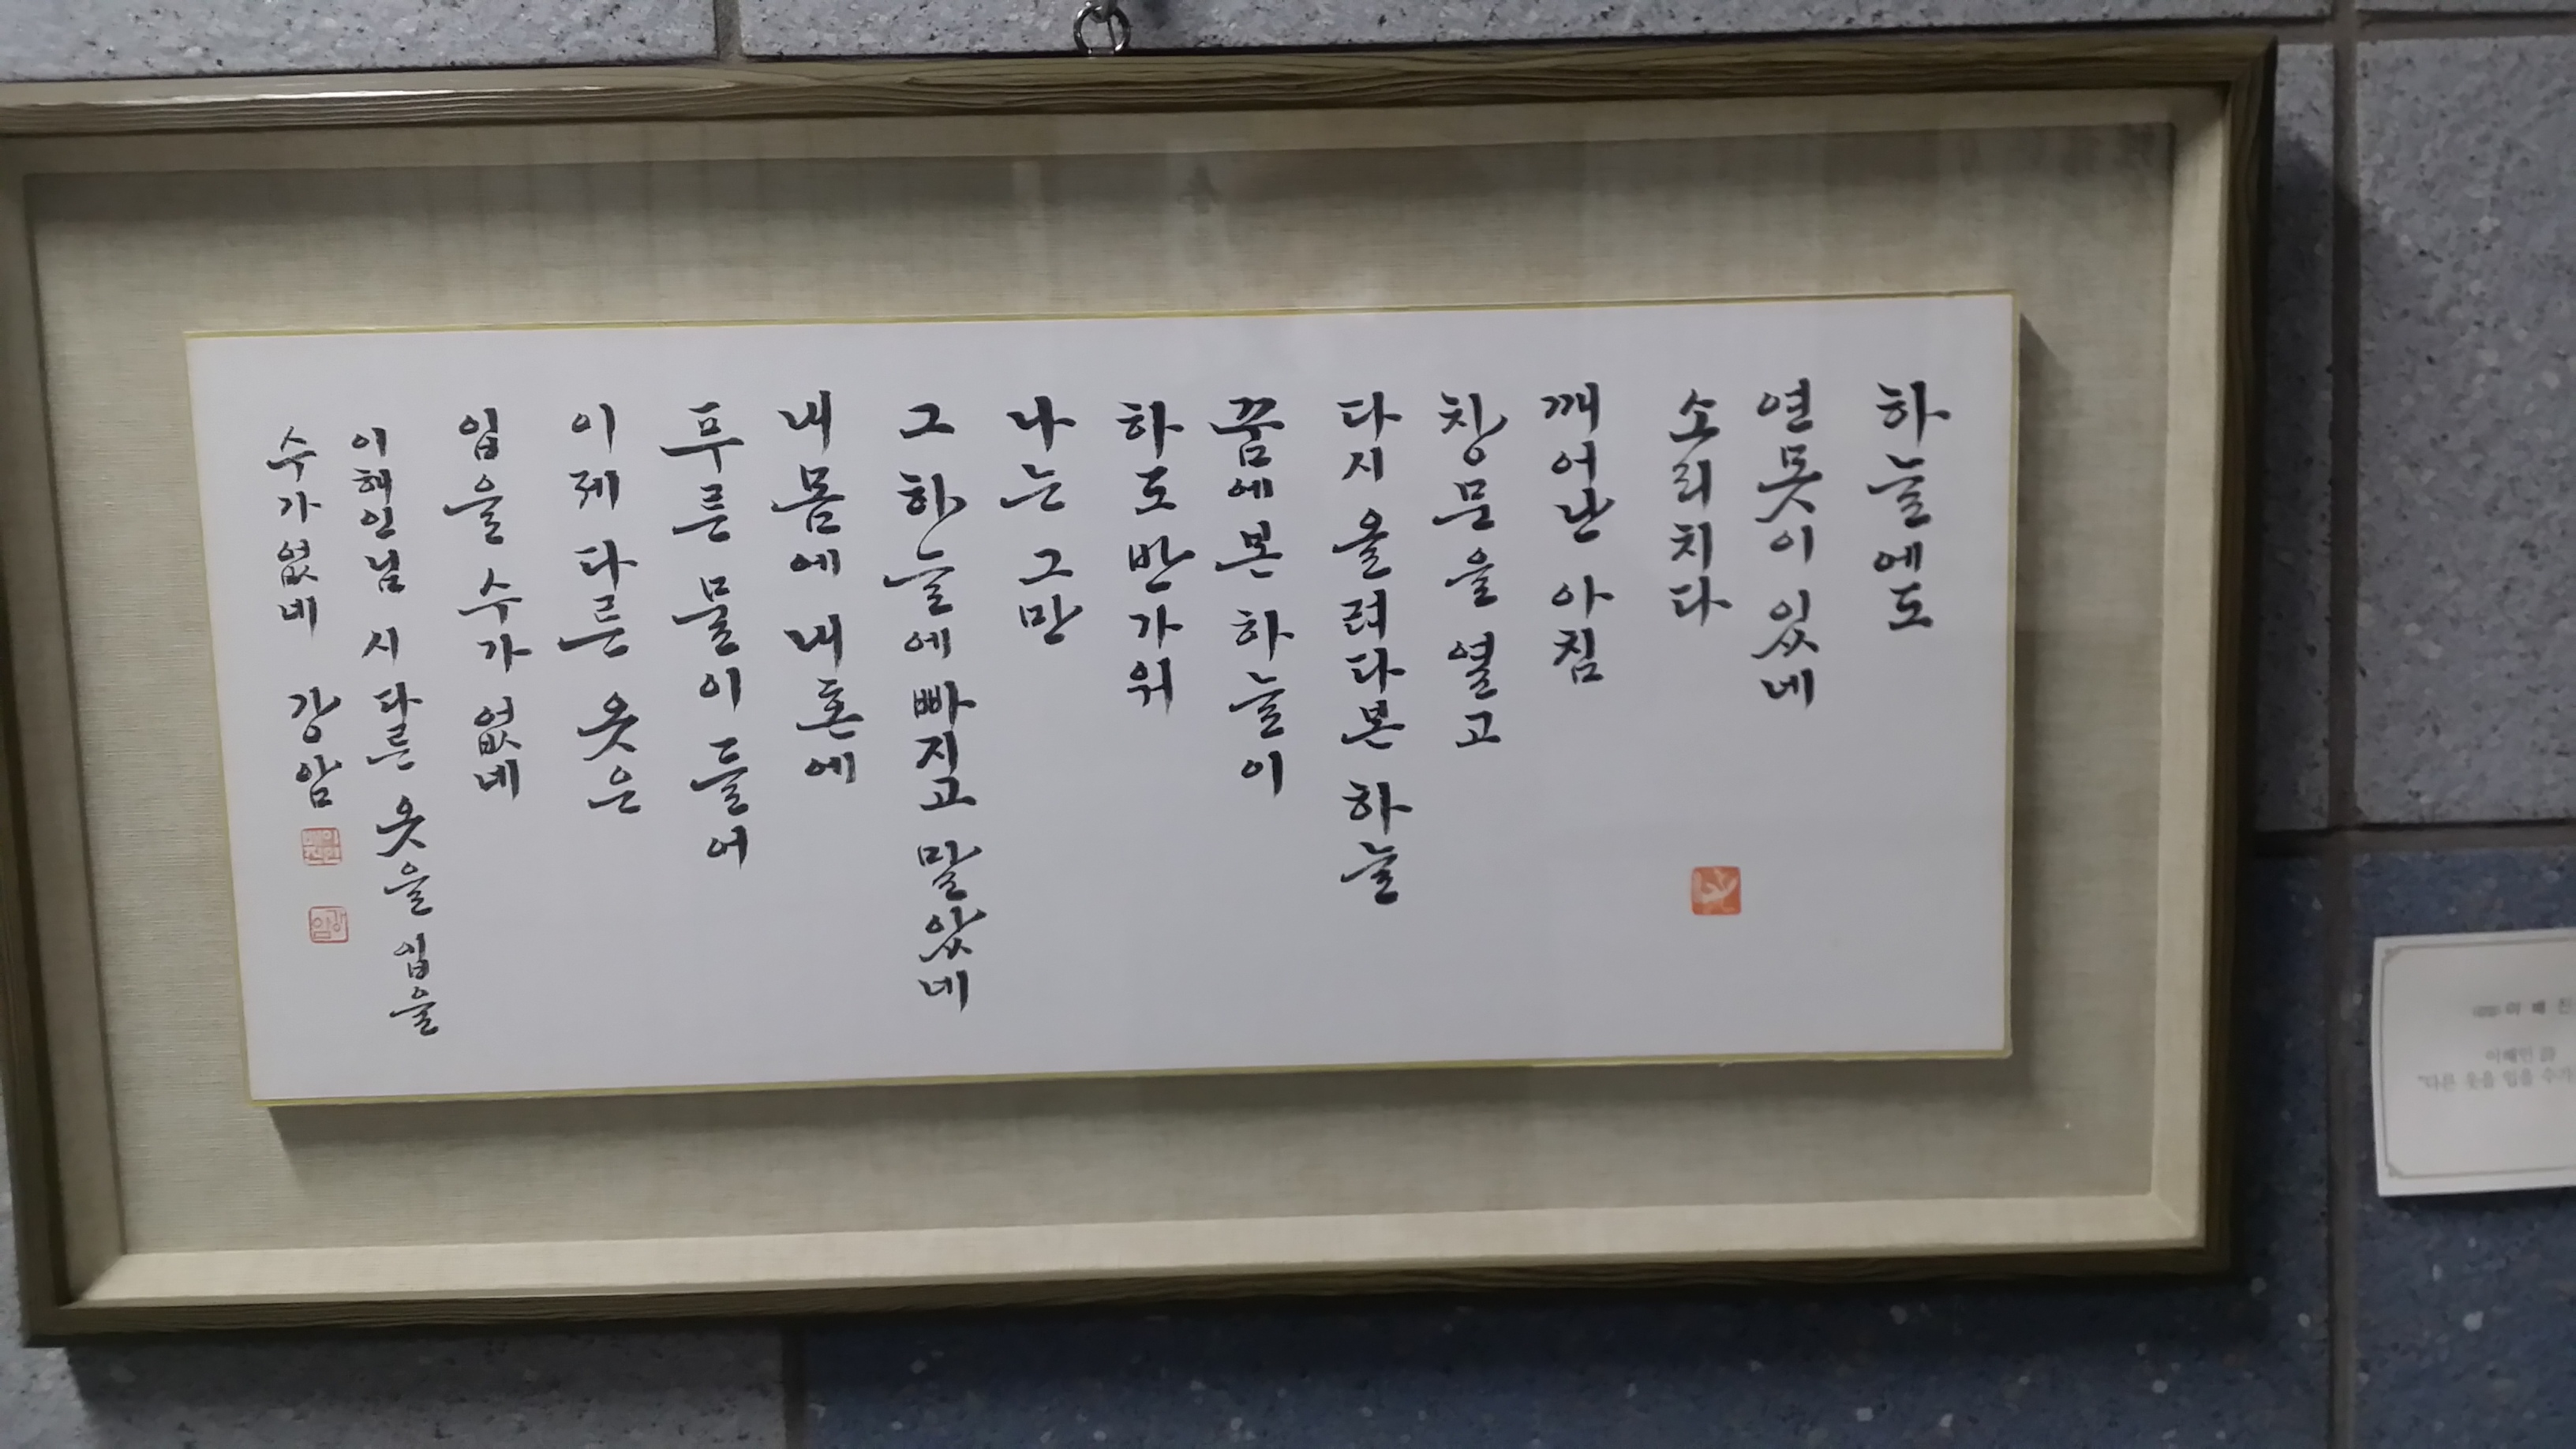 하늘에도
연못이 있네
소리치다
깨어난 아침
창문을 열고
다시 올려다본 하늘
꿈에 본 하늘이
하도 반가워
나는 그만
그 하늘에 빠지고 말았네
내 몸에 내 혼에
푸른 물이 들어
이제 다른 옷은
입을 수가 없네
이해인님 시 다른 옷을 입을
수가 없네 강암
강암
이해인 詩
"다른 옷을 입을 수가